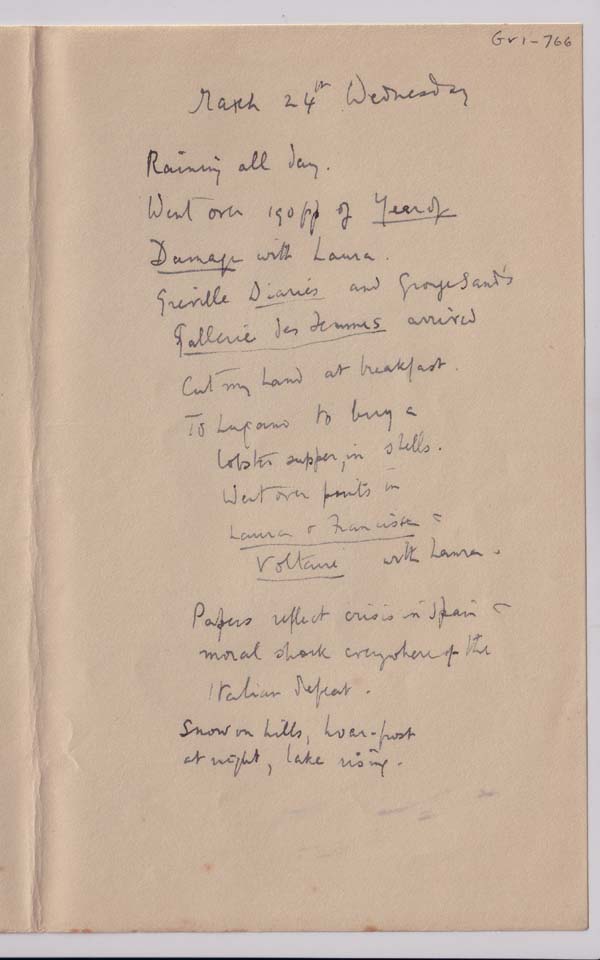 Gr1-766
March 24th Wednesday
Raining all day.
Went over 190 pp of Year of
Damage with Laura.
Greville Diaries and George Sand's
Gallerie des Femmes arrived
Cut my hand at breakfast.
To Lugano to buy a
lobster supper, in shells.
Went over points in
Laura & Francisca -
Voltaire with Laura.
Papers reflect crisis in Spain -
moral shock everywhere of the
Italian defeat.
Snow on hills, hoar-frost
at night, lake rising.